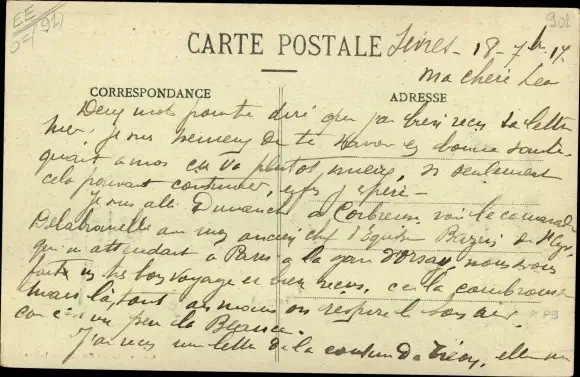 EE
902
CARTE POSTALE
Sèvres - 18 - 7bre 17
Ma chère Léa
CORRESPONDANCE
ADRESSE
Deux mots pour te dire que j'ai bien reçu ta lettre
hier. Je suis heureux de te savoir en bonne santé,
quant à moi ça va plutôt mieux, si seulement
cela pouvait continuer, enfin j'espère -
Je suis allé Dimanche à Corbreuse, voir le camarade
Delabrouelle avec mon ancien chef d'Equipe
qui m'attendait à Paris à la gare d'Orsay, nous avons
fait un très bon voyage et bien reçus, c'est la cambrousse
mais là, tout au moins on respire le bon air,
car c'est un peu la Beauce.
J'ai reçu une lettre de la cousine de elle